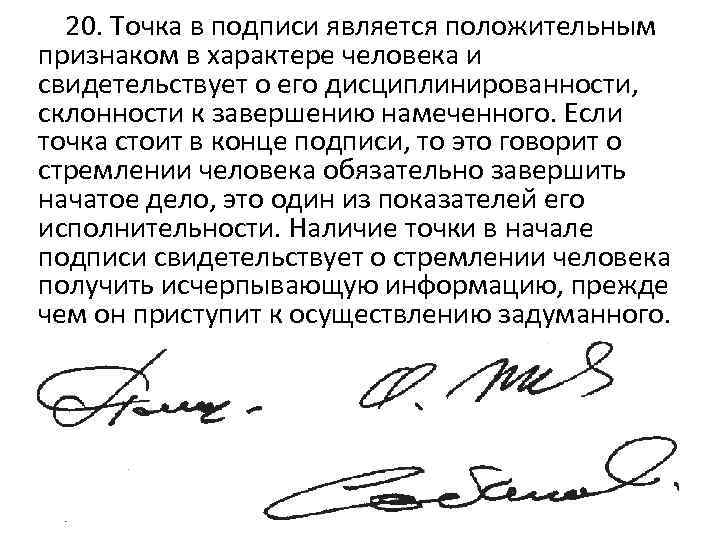 20. Точка в подписи является положительным
признаком в характере человека и
свидетельствует о его дисциплинированности,
склонности к завершению намеченного. Если
точка стоит в конце подписи, то это говорит о
стремлении человека обязательно завершить
начатое дело, это один из показателей его
исполнительности. Наличие точки в начале
подписи свидетельствует о стремлении человека
получить исчерпывающую информацию, прежде
чем он приступит к осуществлению задуманного.